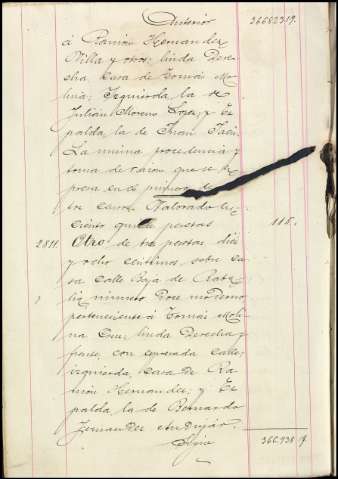 Anterior 366823.19.
á Ramón Hernandez
Villa y otros; linda Dere-
cha, Casa de Tomás Mo-
lina; Izquierda, la de
Julián Moreno Lopez; y Es-
palda, la de Juan
La misma procedencia y
toma de razon que se es-
presa en el primero de
en ciento
ciento quince pesetas 115.
2811. Otro de tres pesetas diez
y ocho centimos, sobre ca-
sa Calle Baja de Raba-
lio numero Doce moderno
perteneciente á Tomás Moli-
na Cruz, linda Derecha y
frente, con espresada Calle;
izquierda, Casa de Ra-
món Hernandez; y Es-
palda la de Bernardo
Fernandez Andujar.
Sigue 366.938 19